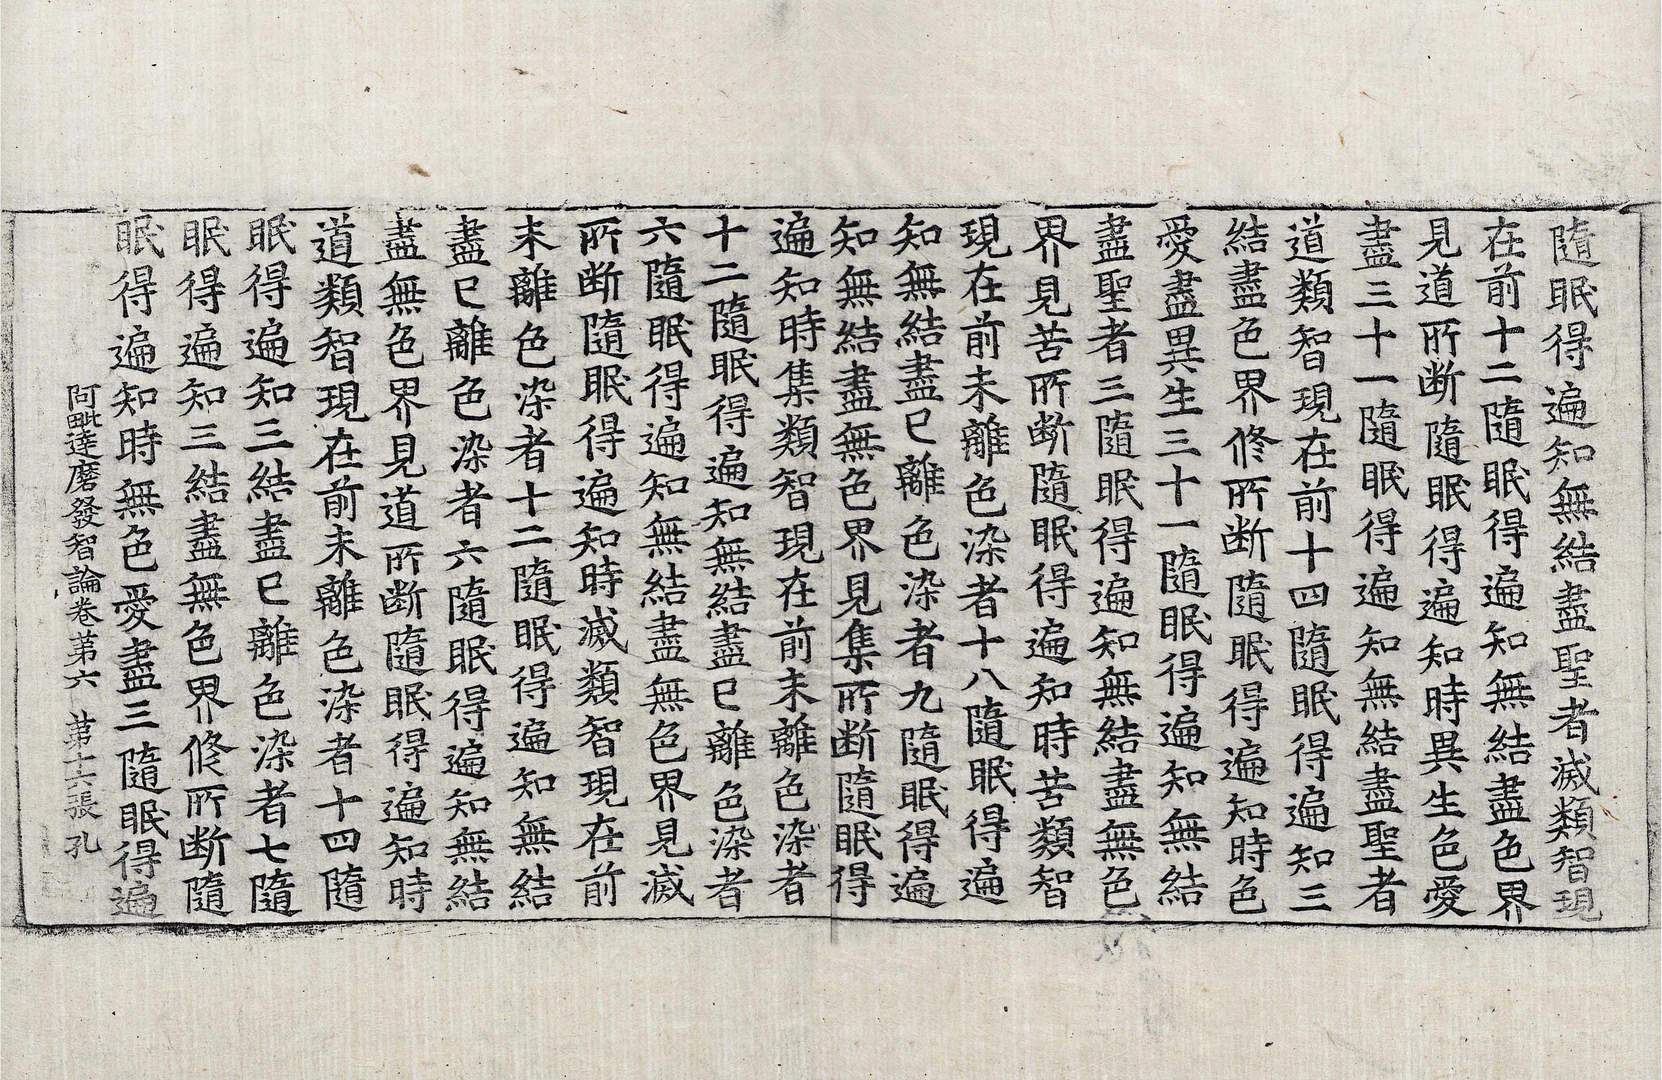 隨眠得遍知無結盡聖者滅類智現
在前十二隨眠得遍知無結盡色界
見道所断隨眠得遍知時異生色愛
盡三十一隨眠得遍知無結盡聖者
道類智現在前十四隨眠得遍知三
結盡色界修所断隨眠得遍知時色
愛盡異生三十一隨眠得遍知無結
盡聖者三隨眠得遍知無結盡無色
界見苦所断隨眠得遍知時苦類智
現在前未離色染者十八隨眠得遍
知無結盡已離色染者九隨眠得遍
知無結盡無色界見集所断隨眠得
遍知時集類智現在前未離色染者
十二隨眠得遍知無結盡已離色染者
六隨眠得遍知無結盡無色界見滅
所断隨眠得遍知時滅類智現在前
未離色染者十二隨眠得遍知無結
盡已離色染者六隨眠得遍知無結
盡無色界見道所断隨眠得遍知時
道類智現在前未離色染者十四隨
眠得遍知三結盡已離色染者七隨
眠得遍知三結盡無色界修所断隨
眠得遍知時無色愛盡三隨眠得遍
阿毗達磨發智論卷第六 第十六張 孔